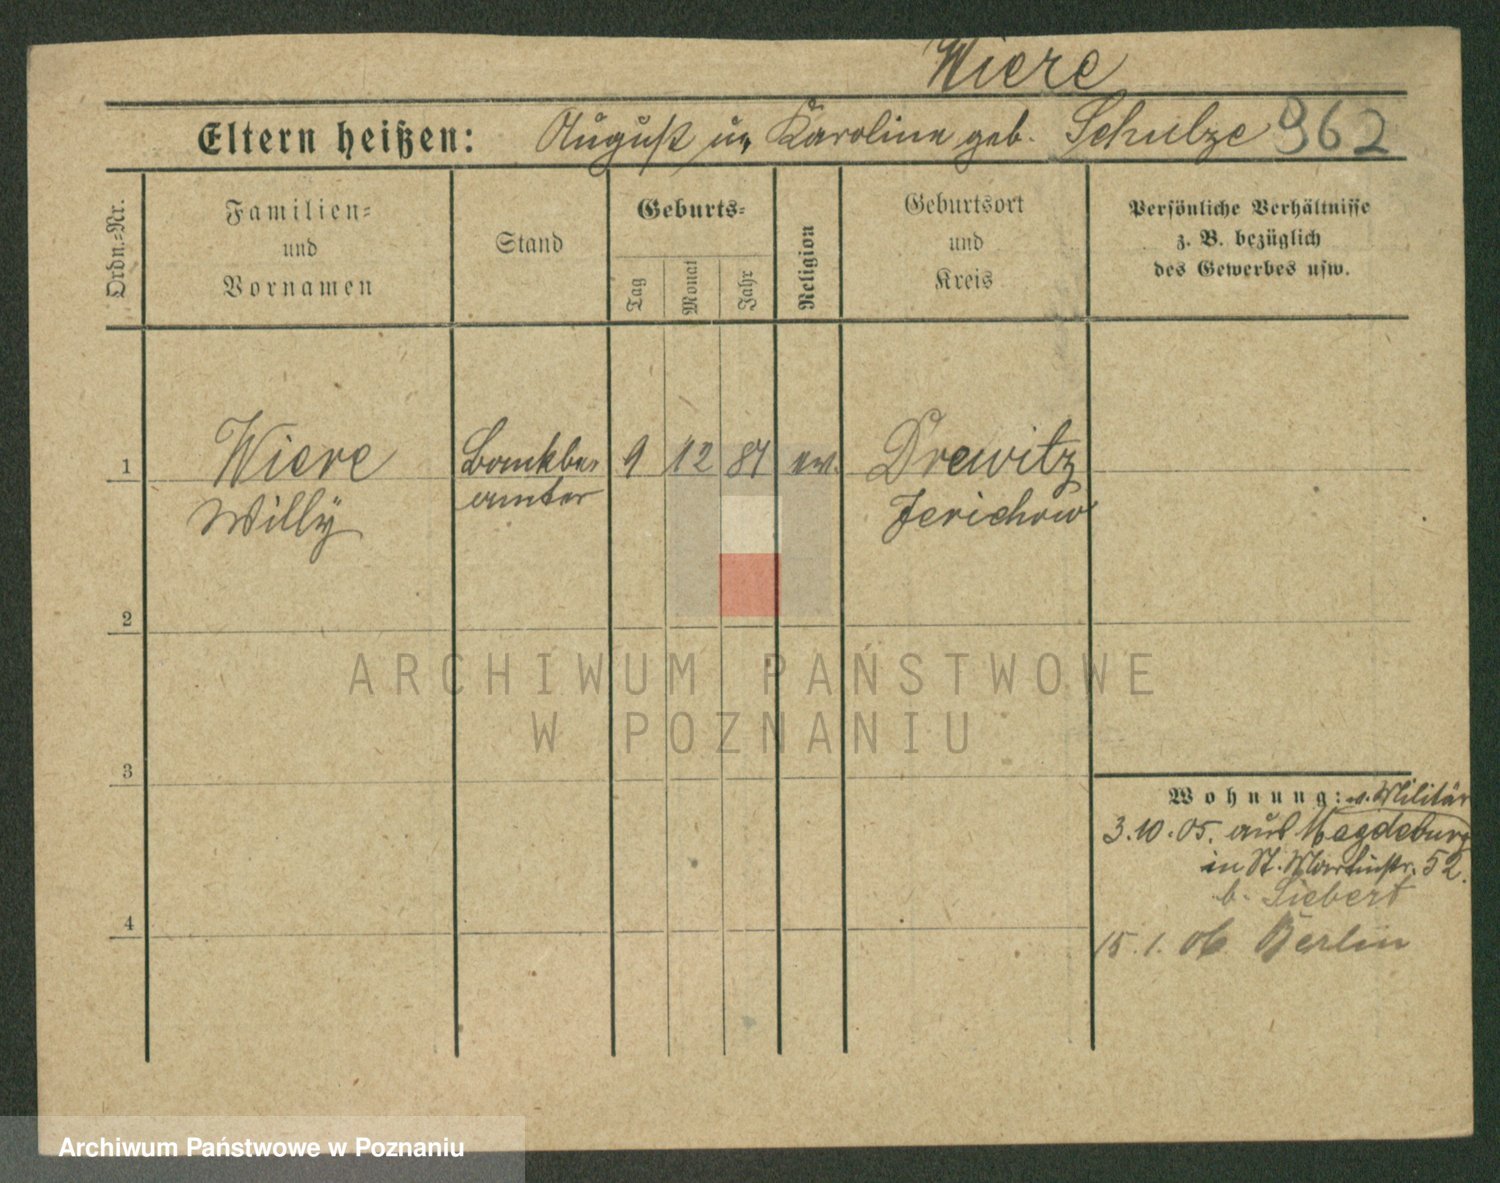 Wiere
Eltern heißen: August u. Karoline geb. Schulze 962
Ordn.-Nr.
Familien-
und
Vornamen
Stand
Geburts-
Tag
Monat
Jahr
Religion
Geburtsort
und
Kreis
Persönliche Verhältnisse
z. B. bezüglich
des Gewerbes usw.
1 Wiere Bankbe- 9 12 81 ev. Drewitz
Willy amter Jerichow
2
3
4
Wohnung: v. Militär
3.10.05. aus Magdeburg
in St. Martinstr. 52.
b. Siebert
15.1.06 Berlin
ARCHIWUM PAŃSTWOWE
W POZNANIU
Archiwum Państwowe w Poznaniu